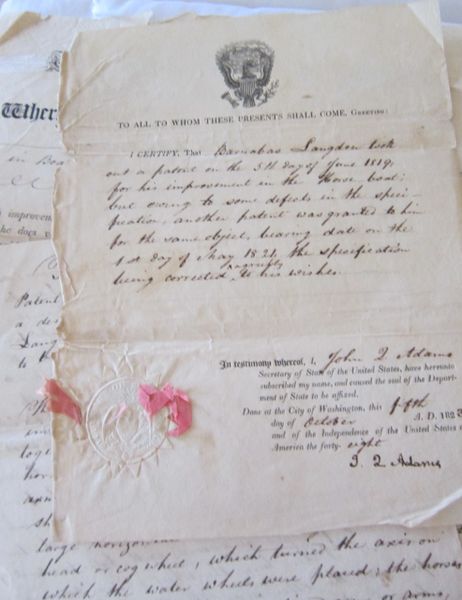 TO ALL TO WHOM THESE PRESENTS SHALL COME, GREETING:
I CERTIFY, That Barnabas Langdon took
out a patent on the 5th day of June 1819,
for his improvement in the Horse boat;
but owing to some defects in the speci-
fication, another patent was granted to him
for the same object, bearing date on the
1st day of May 1821, the specification
being corrected agreeably to his wishes.
In testimony whereof, I, John Q Adams
Secretary of State of the United States, have hereunto
subscribed my name, and caused the seal of the Depart-
ment of State to be affixed.
Done at the City of Washington, this fifth
day of October A. D. 1823
and of the Independence of the United States of
America the forty-eight
J. Q. Adams
Wher
in Boa
improvem
he does
Patent
a des
Lang
to th
toge
hor
axis
sh
large horizontal
head or cog wheel, which turned the axis on
which the water wheels were placed; the horses
or arms,